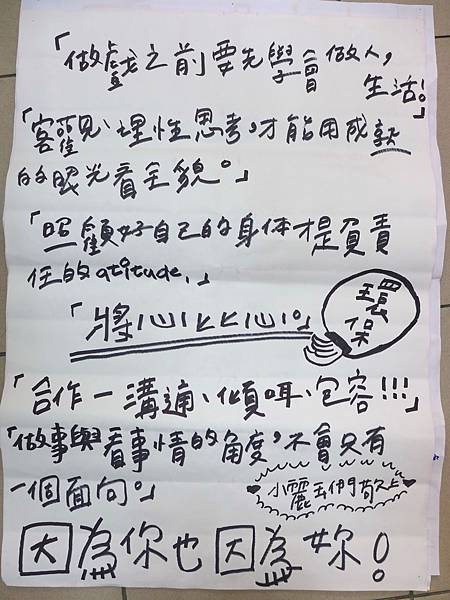 「做戲之前要先學會做人,
生活!」
「客觀、理性思考,才能用成熟
的眼光看全貌。」
「照顧好自己的身体才是負責
任的atitude.」
「將心比心。」
環
保
「合作一溝通、傾咡、包容!!!」
「做事與看事情的角度,不會只有
一個面向。」
小麗玉們敬上
因為你也因為妳!